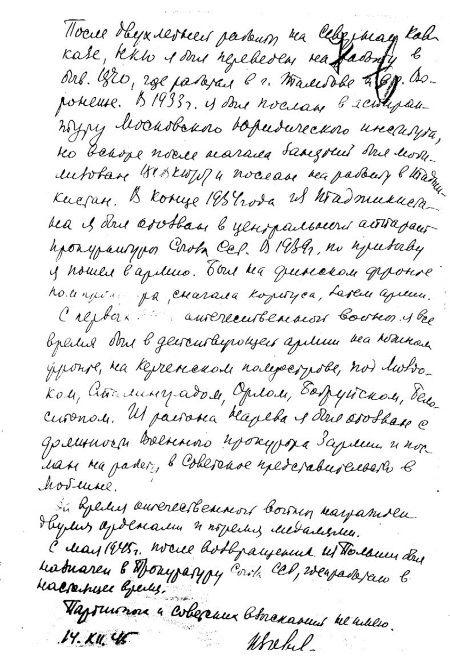 После двухлетней работы на Северном Кав-
казе, НКЮ я был переведен на работу в
быв. ЦЧО, где работал в г. Тамбове и в г. Во-
ронеже. В 1933 г. я был послан в аспиран-
туру Московского юридического института,
но вскоре после начала занятий был моби-
лизован и послан на работу в Таджи-
кистан. В конце 1934 года из Таджикиста-
на я был отозван в центральный аппарат
прокуратуры Союза ССР. В 1939 г. по призыву
я пошел в армию. Был на финском фронте
ра сначала корпуса, затем армии.
С первых отечественной войны я все
время был в действующей армии на южном
фронте, на Керченском полуострове, под
Сталинградом, Орлом, Бобруйском, Бело-
стоком. Из района Нарева я был отозван с
должности военного прокурора 3 армии и пос-
лан на работу в Советское представительство в
Люблине.
время отечественной войны награжден
двумя орденами и тремя медалями.
С мая 1945 г. после возвращения из Польши был
назначен в Прокуратуру Союза ССР, где работаю в
настоящее время.
Партийных и советских взысканий не имею.
14.XII.45